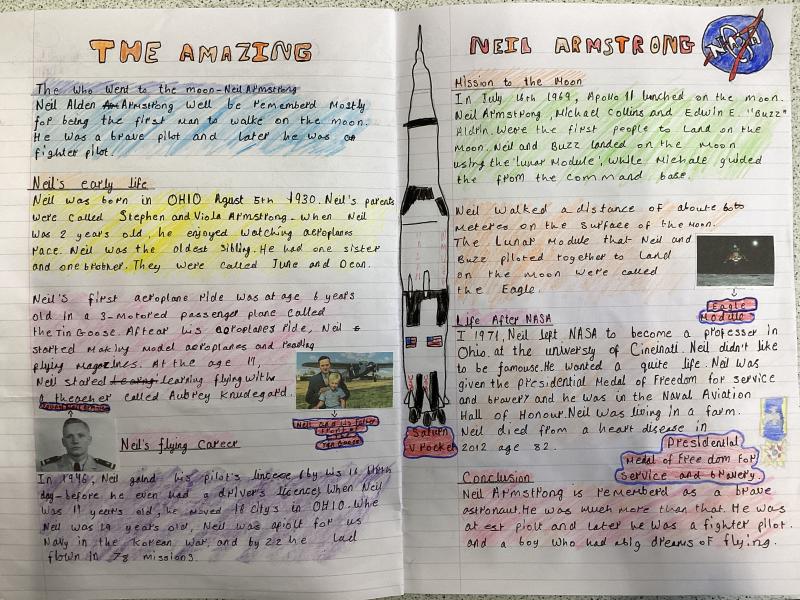 THE AMAZING
The Who Went to the moon - Neil Armstrong
Neil Alden Armstrong well be rememberd Mostly
for being the first man to walke on the moon.
He was a brave pilot and later he was a
fighter pilot.
Neil's early life
Neil was born in OHIO Agust 5th 1930. Neil's parents
were called Stephen and Viola Armstrong. When Neil
was 2 years old, he enjoyed watching aeroplanes
race. Neil was the oldest sibling. He had one sister
and one brother. They were called June and Dean.
Neil's first aeroplane ride was at age 6 years
old in a 3-motored passenger plane called
the Tin Goose. Aftear his aeroplanes ride, Neil
started making model aeroplanes and reading
flying magazines. At the age 17,
Neil stared learning flying with
a theacher called Aubrey Knudegard.
Neil and his father
Tin Goose
Neil's flying Career
In 1946, Neil gaind his pilot's lincese (by his 16 birth
day - before he even had a driver's licence) When Neil
was 11 years old, he moved 16 citys in OHIO. Whe
Neil was 19 years old, Neil was a piolt for us
Navy in the Korean War, and by 22 he had
flown in 78 missions.
Saturn
V rocket
NEIL ARMSTRONG
NASA
Mission to the Moon
In July 16th 1969, Apollo 11 lunched on the moon.
Neil Armstrong, Michael Collins and Edwin E. "Buzz"
Aldrin. Were the first people to land on the
Moon. Neil and Buzz landed on the Moon
using the 'lunar Module', while Michale guided
the from the command base.
Neil walked a distance of about 60
meteres on the surface of the Moon.
The Lunar Module that Neil and
Buzz piloted together to land
on the moon were called
the Eagle.
Eagle
Module
Life After NASA
I 1971, Neil left NASA to become a professer in
Ohio. at the univercy of Cineinati. Neil didn't like
to be famouse. He wanted a quite life. Neil was
given the presidential Medal of Freedom for service
and bravery and he was in the Naval Aviation
Hall of Honour. Neil was living in a farm.
Neil died from a heart disease in
2012 age 82.
Presidential
Medal of Freedom for
service and bravery.
Conclusion
Neil Armstrong is rememberd as a brave
astronaut. He was much more than that. He was
at est piolt and later he was a fighter pilot.
and a boy who had abig dreams of flying.